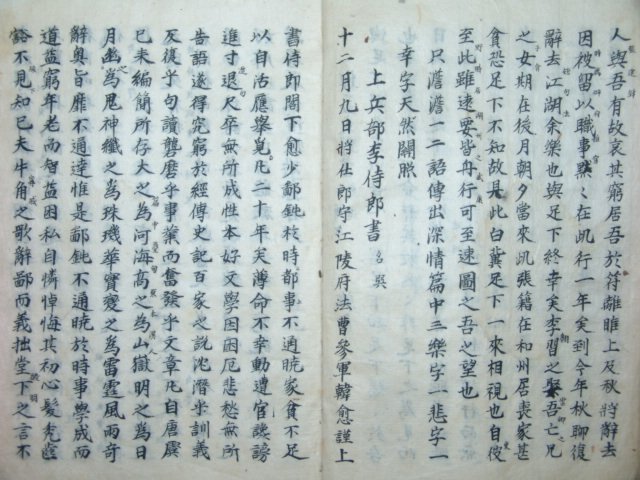 人與吾有故哀其窮居吾於符離睢上及秋將辭去
因被留以職事默々在此行一年矣到今年秋聊復
辭去江湖余樂也與足下終幸矣李習之娶吾亡兄
之女期在後月朝夕當來此張籍在和州居喪家甚
貧恐足下不知故具此白冀足下一來相視也自彼
至此雖遠要皆舟行可至速圖之吾之望也
只澹澹一二語傳出深情篇中三樂字一悲字一
幸字天然關照
上兵部李侍郎書 名巽
十二月九日將仕郎守江陵府法曹參軍韓愈謹上
書侍郎閣下愈少鄙鈍於時都事不通曉家貧不足
以自活應舉覓凡二十年矣薄命不幸動遭官讒謗
進寸退尺卒無所成性本好文學因困厄悲愁無所
告語遂得究窮於經傳史記百家之說沈潛乎訓義
反復乎句讀礱磨乎事業而奮發乎文章凡自唐虞
已來編簡所存大之為河海高之為山嶽明之為日
月幽為鬼神纖之為珠璣華實變之為雷霆風雨奇
辭奧旨靡不通達惟是鄙鈍不通曉於時事學成而
道益窮年老而智益困私自憐悼悔其初心髮禿齒
豁不見知已夫牛角之歌辭鄙而義拙堂下之言不